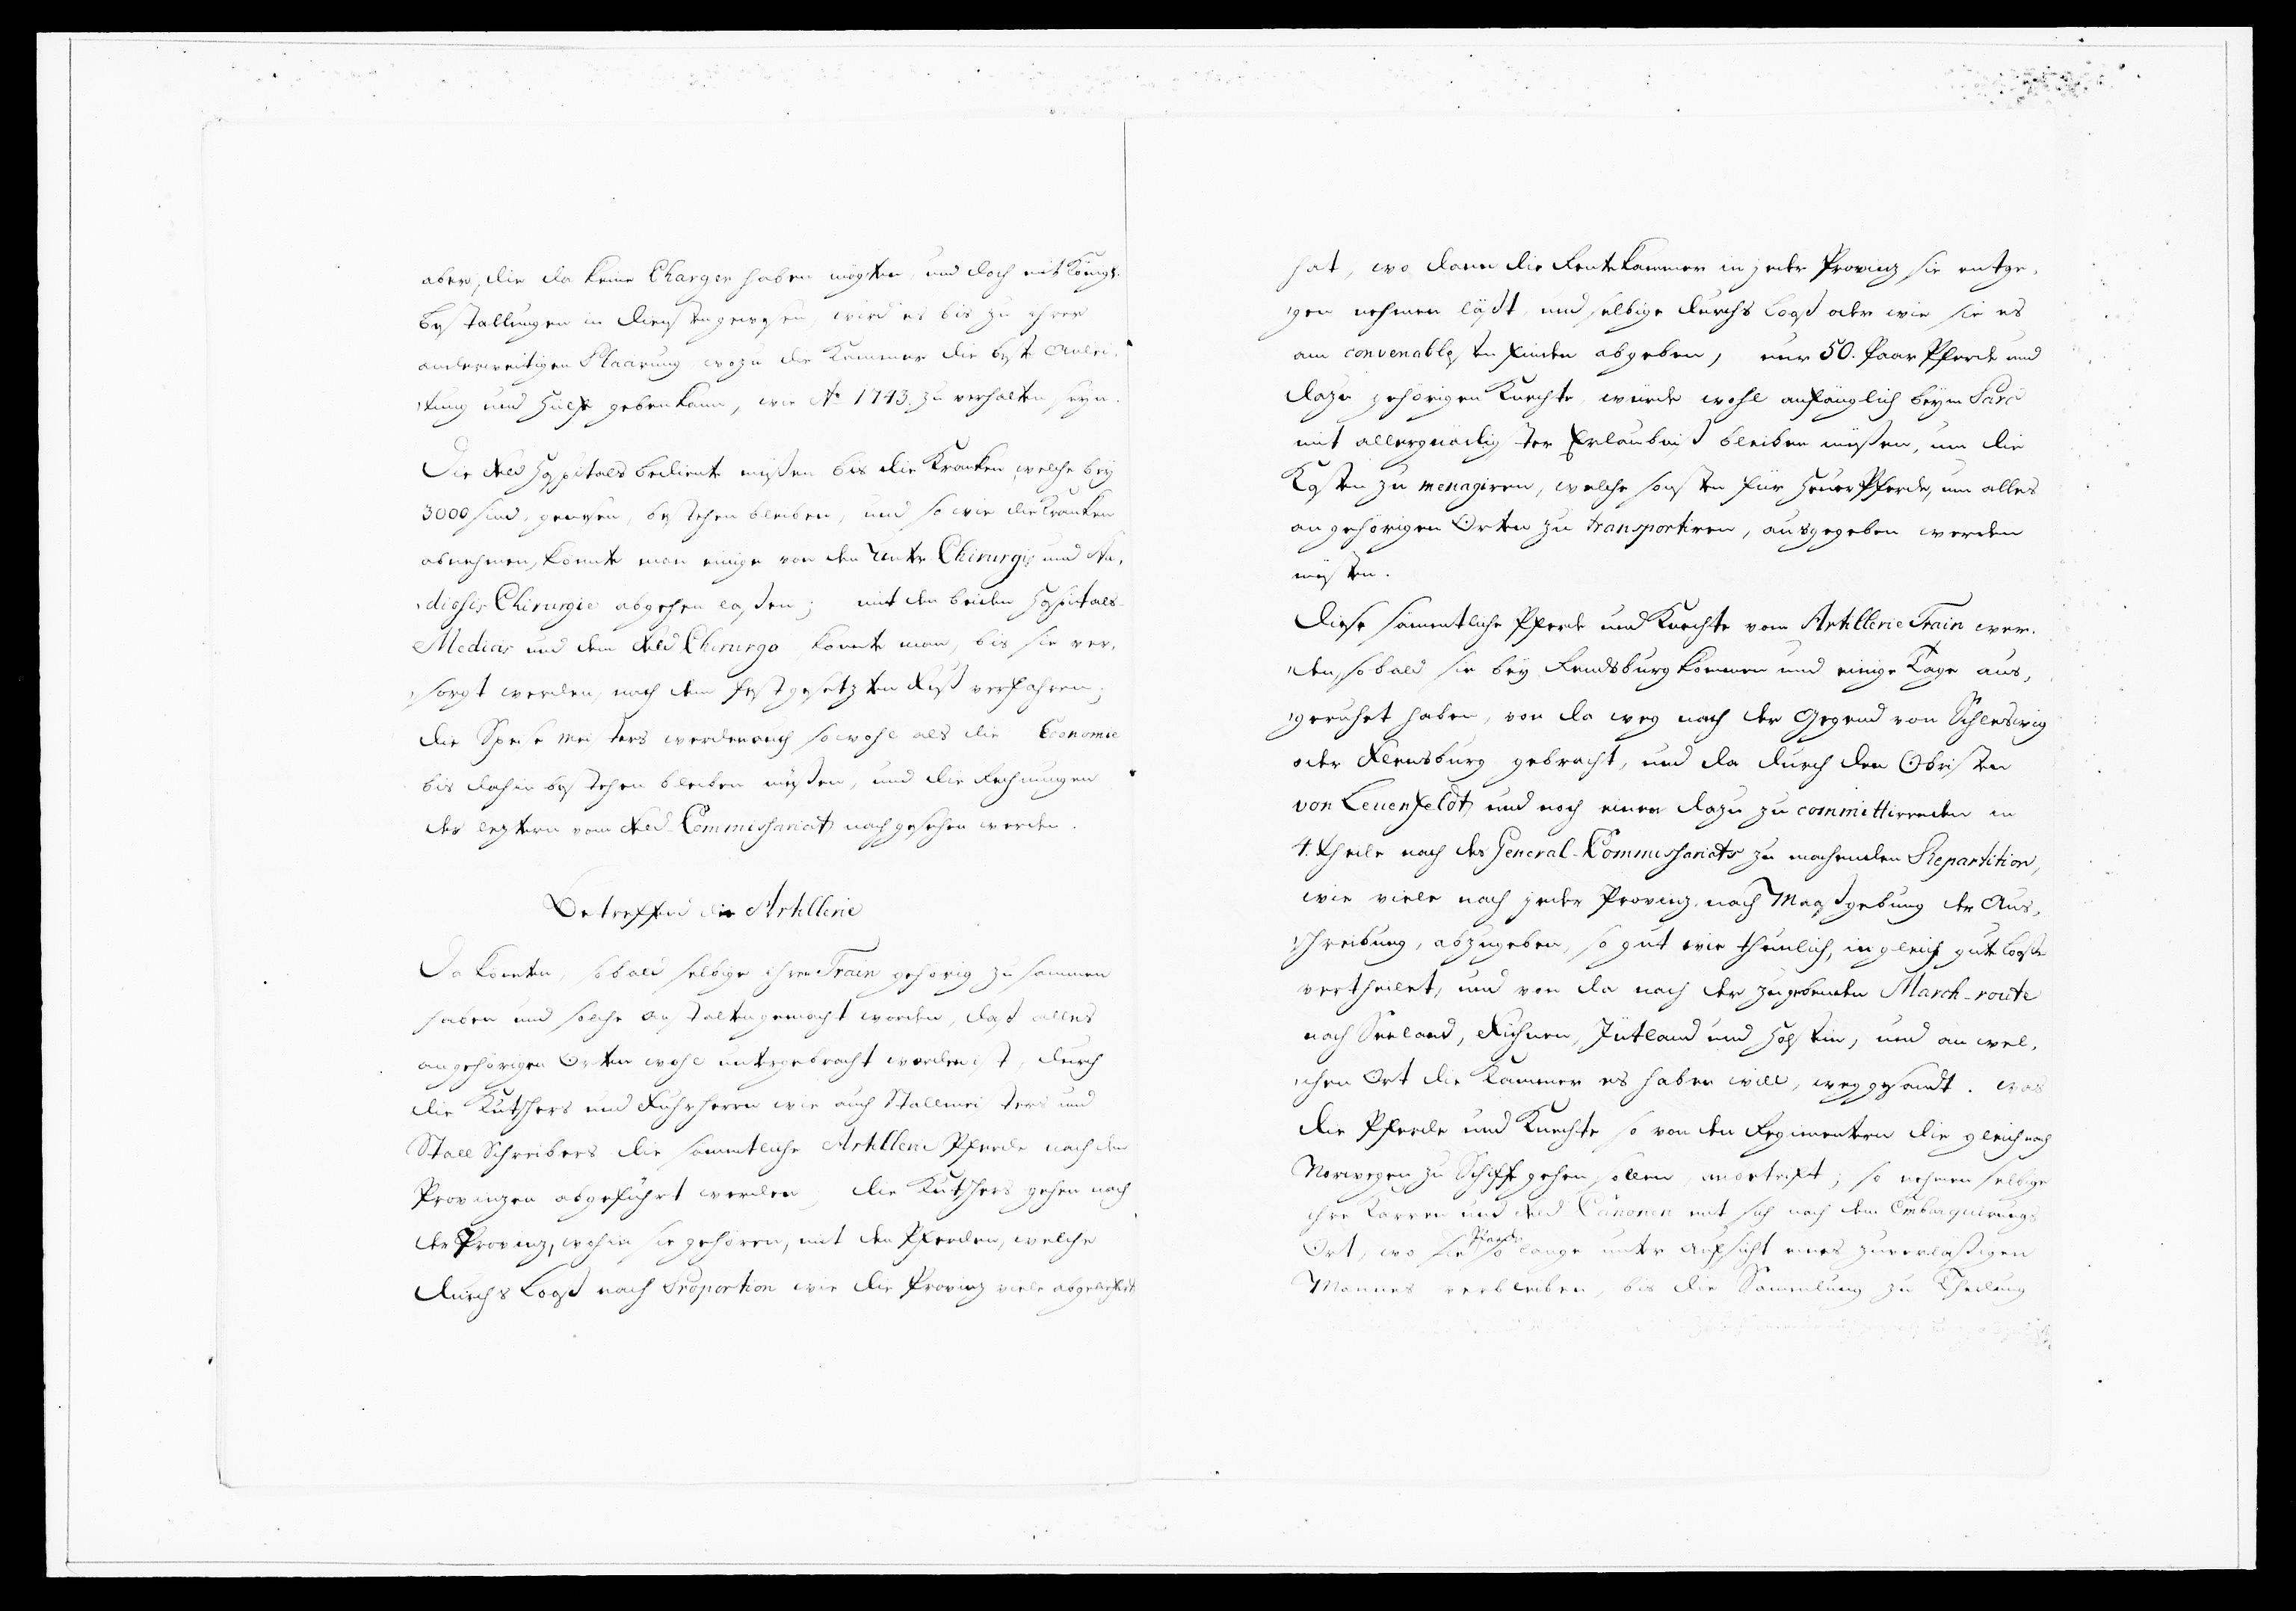 aber, die da keine Chargen haben mögten, und doch mit Königl.
Bestallungen in Diensten gewesen, wird es bis zu ihrer
anderweitigen Plaarung, wozu die Kammer die beste Anlei-
tung und Hülfe geben kann, wie Ao 1743. zu verhalten seyn.
Die Feld Hospitals bediente müßen bis die Kranken, welche bey
3000 sind, genesen, bestehen bleiben, und so wie die Kranken
abnehmen, könnte man einige von den Unter Chirurgis und Stu-
diosis Chirurgie abgehen laßen; mit den beiden Hospitals-
Medicis und dem Feld Chirurgo könnte man, bis sie ver-
sorgt werden, nach dem festgesetzten Fuß verfahren;
die Speise meisters werden auch sowohl als die Economie
bis dahin bestehen bleiben müßen, und die Rechnungen
der leztern vom Feld-Commissariat nachgesehen werden.
Betreffend die Artillerie
Da könten, sobald selbige ihren Train gehörig zusammen
haben und solche Anstalten gemacht worden, daß alles
an gehörigen Orten wohl untergebracht worden ist, durch
die Kutschers und Fuhrherren wie auch Stallmeisters und
Stall Schreibers die sämmtliche Artillerie Pferde nach den
Provinzen abgeführt werden, die Kutschers gehen nach
der Provinz, wohin sie gehören, mit den Pferden, welche
durchs Looß nach Proportion wie die Provinz viele abgeliefert
hat, wo dann die Rentekammer in jeder Provinz sie entge-
gen nehmen läßt, und selbige durchs Looß oder wie sie es
am convenablesten finden abgeben, nur 50. Paar Pferde und
dazu gehörigen Knechte, würde wohl anfänglich beym Parc
mit allergnädigster Erlaubniß bleiben müßen, um die
Kosten zu menagiren, welche sonsten für Heuer Pferde, um alles
an gehörigen Orten zu transportiren, ausgegeben werden
müsten.
Diese sämmtliche Pferde und Knechte vom Artillerie Train wer-
den, sobald sie bey Rendsburg kommen und einige Tage aus-
geruhet haben, von da weg nach der Gegend von Schleswig
oder Flensburg gebracht, und da durch den Obristen
von Leuenfeldt, und noch einen dazu zu committirenden in
4. Theile nach des General-Commissariats zu machenden Repartition,
wie viele nach jeder Provinz, nach Maaßgebung der Aus-
schreibung, abzugeben, so gut wie thunlich, in gleich gute Looße
vertheilet, und von da nach der zugebenden March-route
nach Seeland, Fühnen, Jütland und Holstein, und an wel-
chen Ort die Kammer es haben will, weggesandt. was
die Pferde und Knechte so von den Regimentern die gleich nach
Norwegen zu Schiffe gehen sollen, anbetrift; so nehmen selbige
ihre Karren und Feld Canonen mit sich nach dem Embarquirungs
Ort, wo die Pferde so lange unter Aufsicht eines zuverläßigen
Mannes verbleiben, bis die Sammlung zu Theilung